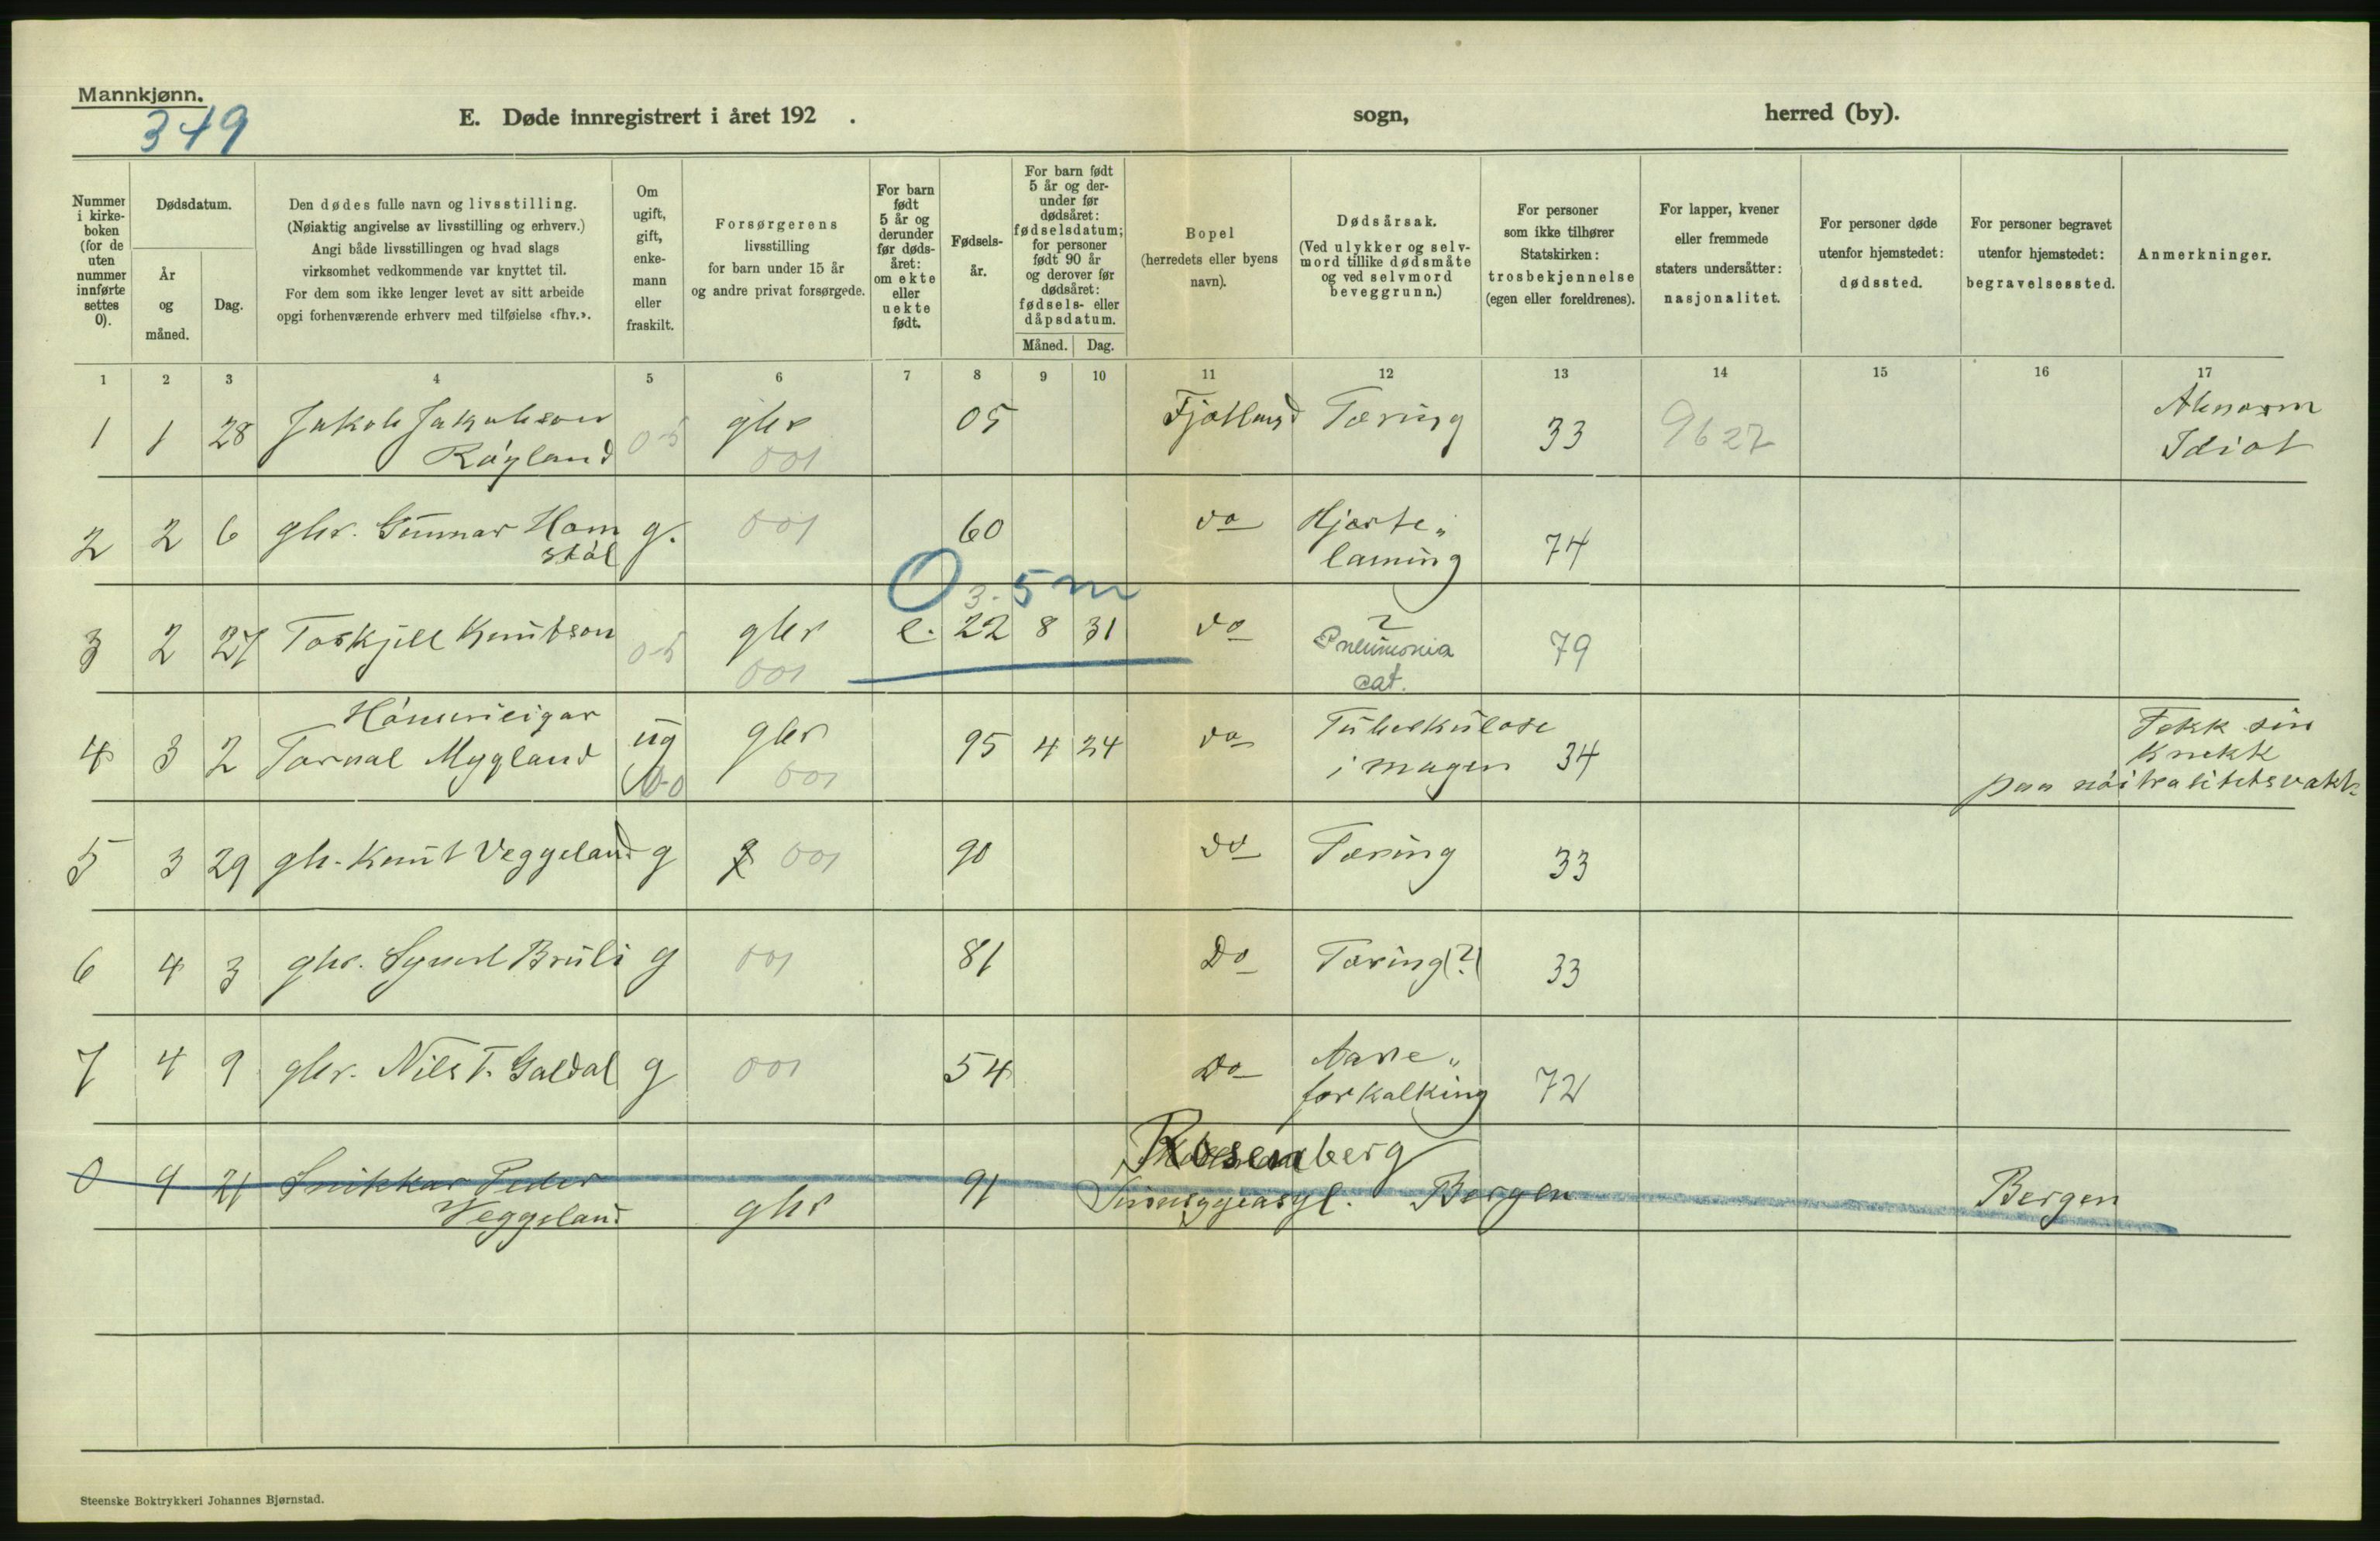 Mannkjønn.
349
E. Døde innregistrert i året 192 . sogn, herred (by).
Nummer i kirke- boken (for de uten nummer innførte settes 0).
Dødsdatum.
År og måned.
Dag.
Den dødes fulle navn og livsstilling.
(Nøiaktig angivelse av livsstilling og erhverv.)
Angi både livsstillingen og hvad slags
virksomhet vedkommende var knyttet til.
For dem som ikke lenger levet av sitt arbeide
opgi forhenværende erhverv med tilføielse «fhv.».
Om ugift, gift, enke- mann eller fraskilt.
Forsørgerens
livsstilling
for barn under 15 år
og andre privat forsørgede.
For barn født 5 år og derunder før døds- året: om ekte eller uekte født.
Fødsels- år.
For barn født 5 år og der- under før dødsåret: fødselsdatum; for personer født 90 år og derover før dødsåret: fødsels- eller dåpsdatum.
Måned. Dag.
Bopel
(herredets eller byens
navn).
Dødsårsak.
(Ved ulykker og selv-
mord tillike dødsmåte
og ved selvmord
beveggrunn.)
For personer
som ikke tilhører
Statskirken:
trosbekjennelse
(egen eller foreldrenes).
For lapper, kvener
eller fremmede
staters undersåtter:
nasjonalitet.
For personer døde
utenfor hjemstedet:
dødssted.
For personer begravet
utenfor hjemstedet:
begravelsessted.
Anmerkninger.
1 2 3 4 5 6 7 8 9 10 11 12 13 14 15 16 17
1 1 28 Jakob Jakobson gbr 05 Fjotland Tæring 33 9627 Abnorm
Røyland 0-5 001 Idiot
2 2 6 gbr. Gunnar Hom g. 001 60 do Hjarte„ 74
skål laming
O 3. 5 m
3 2 27 Torkjell Knutson 0-5 gbr e. 22 8 31 do ? 79
001 Pneumonia
cat.
4 3 2 Torval Mygland ug gbr 95 4 24 do Tuberkulose Fekk sin
0-0 001 i magen 34 knekk
paa nøitralitetsvakt.
5 3 29 gb. Knut Veggeland g 001 90 do Tæring 33
6 4 3 gbr. Syvert Bruli g 001 81 Do Tæring (?) 33
7 4 9 gbr. Nils T. Galdal g 001 54 Do Aare„ 72
forkalking
Rosenberg
0 4 21 Snikkar Peder 91 Bergen Bergen
Veggeland gbr
Steenske Boktrykkeri Johannes Bjørnstad.